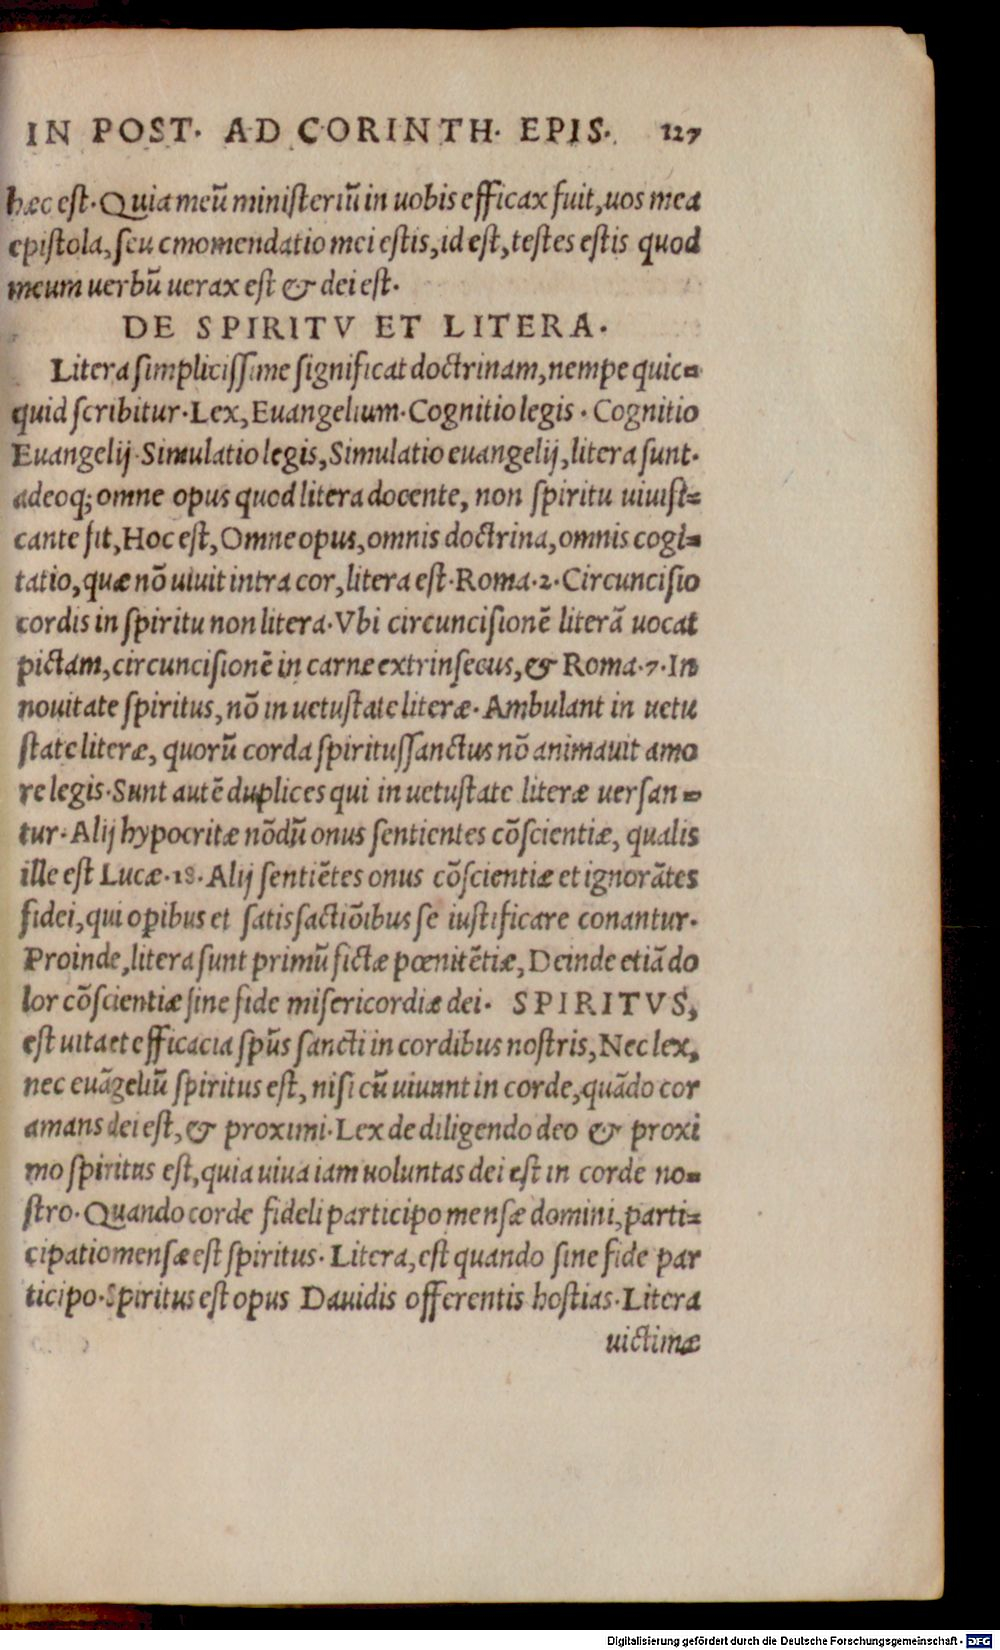 IN POST. AD CORINTH. EPIS. 127
hæc est. Quia meū ministeriū in uobis efficax fuit, uos mea
epistola, seu cmomendatio mei estis, id est, testes estis quod
meum uerbū uerax est & dei est.
DE SPIRITV ET LITERA.
Litera simplicissime significat doctrinam, nempe quic=
quid scribitur. Lex, Euangelium. Cognitio legis. Cognitio
Euangelij. Simulatio legis, Simulatio euangelij, litera sunt.
adeoq; omne opus quod litera docente, non spiritu uiuifi=
cante fit, Hoc est, Omne opus, omnis doctrina, omnis cogi=
tatio, quæ nō uiuit intra cor, litera est. Roma. 2. Circuncisio
cordis in spiritu non litera. Vbi circuncisionē literā uocat
pictam, circuncisionē in carne extrinsecus, & Roma. 7. In
nouitate spiritus, nō in uetustate literæ. Ambulant in uetu
state literæ, quorū corda spiritussanctus nō animauit amo
re legis. Sunt autē duplices qui in uetustate literæ uersan=
tur. Alij hypocritæ nōdū onus sentientes cōscientiæ, qualis
ille est Lucæ. 18. Alij sentiētes onus cōscientiæ et ignorātes
fidei, qui oꝑibus et satisfactiōibus se iustificare conantur.
Proinde, litera sunt primū fictæ pœnitētiæ, Deinde etiā do
lor cōscientiæ sine fide misericordiæ dei. SPIRITVS,
est uita et efficacia spūs sancti in cordibus nostris, Nec lex,
nec euāgeliū spiritus est, nisi cū uiuunt in corde, quādo cor
amans dei est, & proximi. Lex de diligendo deo & proxi
mo spiritus est, quia uiua iam uoluntas dei est in corde no=
stro. Quando corde fideli participo mensæ domini, parti=
cipatio mensæ est spiritus. Litera, est quando sine fide par
ticipo. Spiritus est opus Dauidis offerentis hostias. Litera
uictimæ
Digitalisierung gefördert durch die Deutsche Forschungsgemeinschaft - DFG